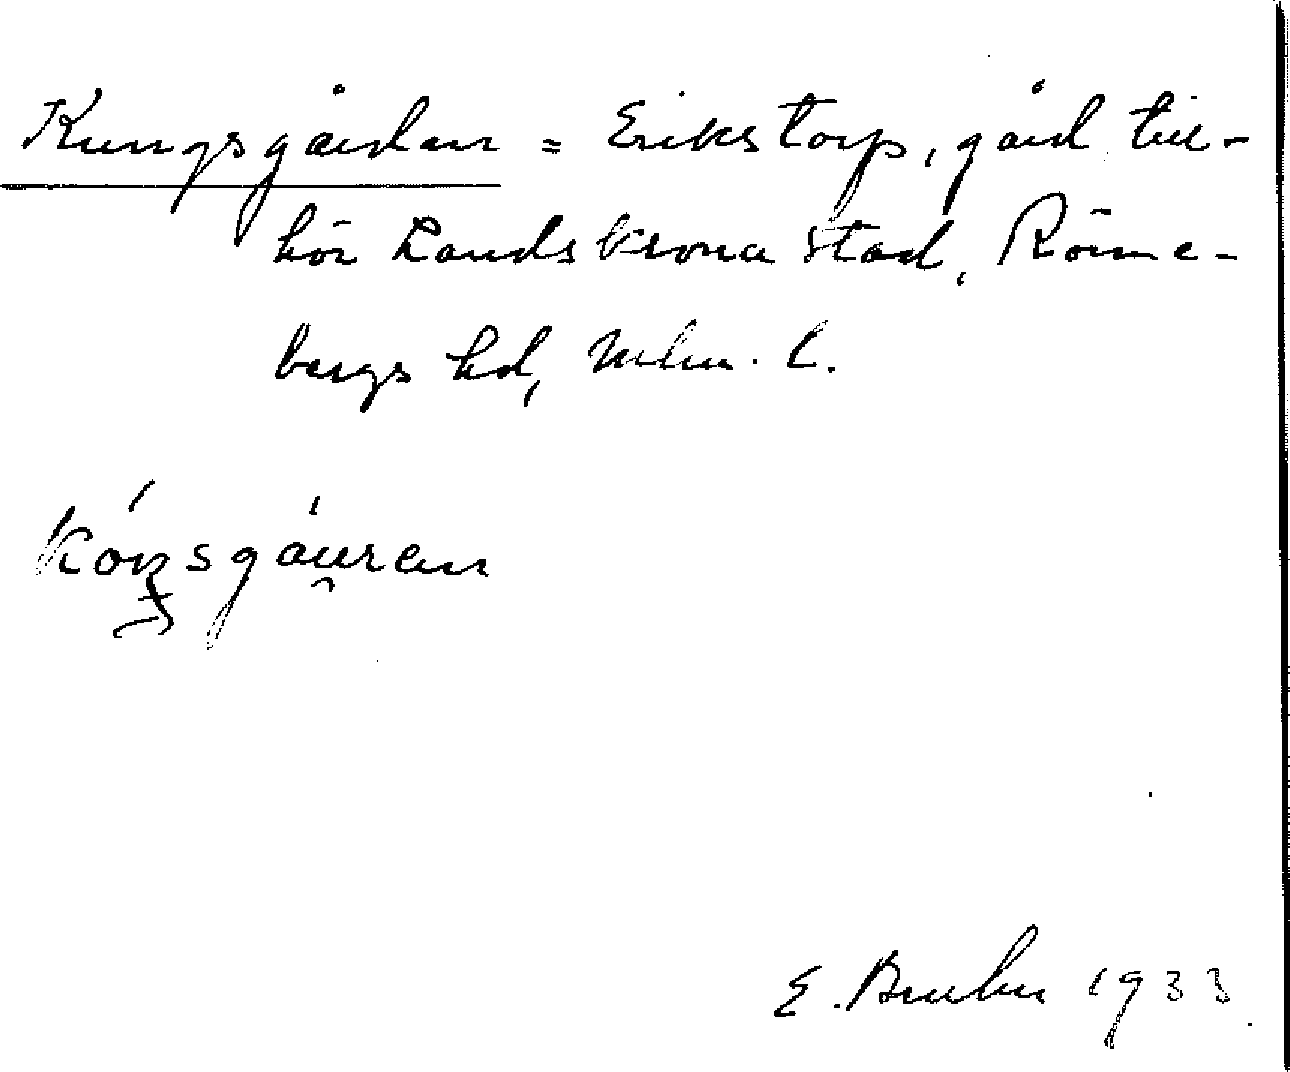 Kungsgården = Erikstorp, gård till-
hör Landskrona stad, Rönne-
bergs hd, Mlm. l.
Kóŋsgáu̯ren
E. Bruhn 1933